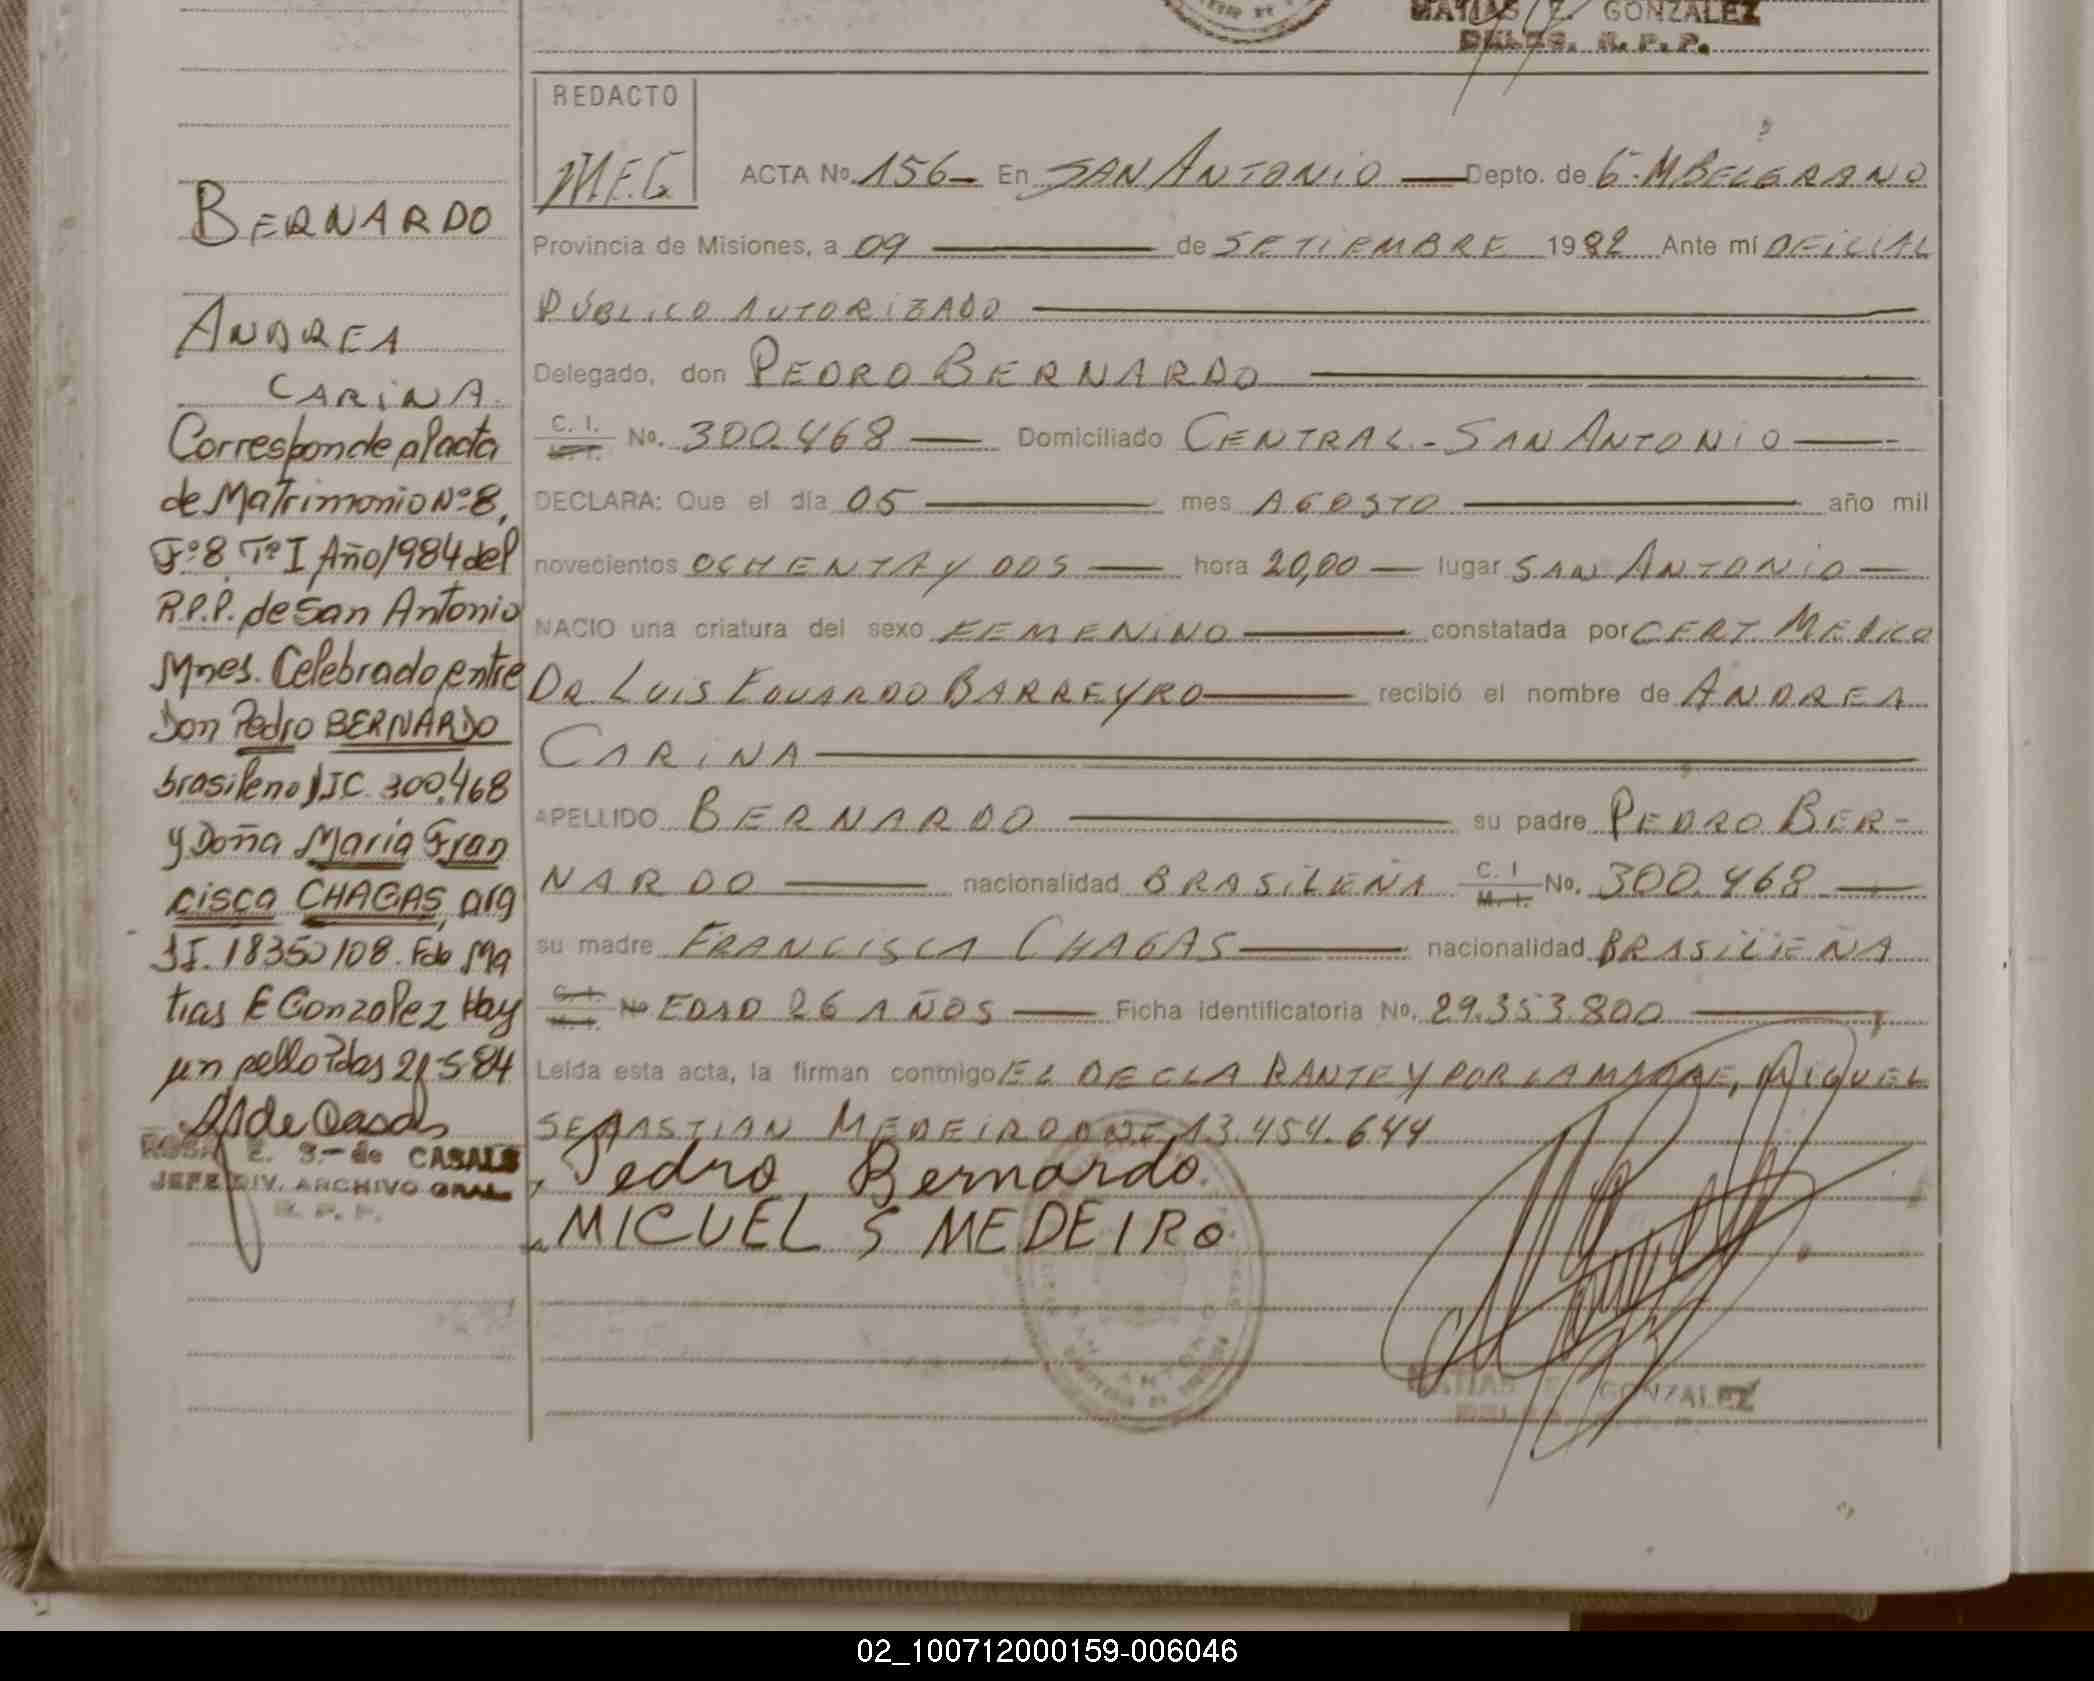 MATIAS E. GONZALEZ
DELEG. R. P. P.
REDACTO
M.E.G.
ACTA No. 156- En SAN ANTONIO Depto. de G. M BELGRANO
Provincia de Misiones, a 09 de SETIEMBRE 1982 Ante mí OFICIAL
PÚBLICO AUTORIZADO
Delegado, don PEDRO BERNARDO
C. I. No. 300.468 Domiciliado CENTRAL - SAN ANTONIO
DECLARA: Que el día 05 mes AGOSTO año mil
novecientos OCHENTA Y DOS hora 20,00 lugar SAN ANTONIO
NACIO una criatura del sexo FEMENINO constatada por CERT MEDICO
DR. LUIS EDUARDO BARREYRO recibió el nombre de ANDREA
CARINA
APELLIDO BERNARDO su padre PEDRO BER-
NARDO nacionalidad BRASILEÑA C. I M. I. No. 300.468
su madre FRANCISCA CHAGAS nacionalidad BRASILIEÑA
C. I. M. I. No EDAD 26 AÑOS Ficha identificatoria No. 29.353.800
Leída esta acta, la firman conmigo EL DECLARANTE Y POR LA MADRE, MIGUEL
SEBASTIAN MEDEIRO DNI 13.454.644
Pedro Bernardo.
MIGUEL S MEDEIRO.
MATIAS E. GONZALEZ
BERNARDO
ANDREA
CARINA.
Corresponde al acta
de Matrimonio Nº 8,
Fº 8 Tº I Año 1984 del
R.P.P. de San Antonio
Mnes. Celebrado entre
Don Pedro BERNARDO
brasileno, IC. 300.468
y Doña María Fran
cisca CHAGAS, arg
18350108. Fdo Ma
tias E Gonzalez Hay
un sello Pdas 21-5-84
ROSA E. S. de CASALS
JEFE DIV. ARCHIVO GRAL
R. P. P.
02_100712000159-006046